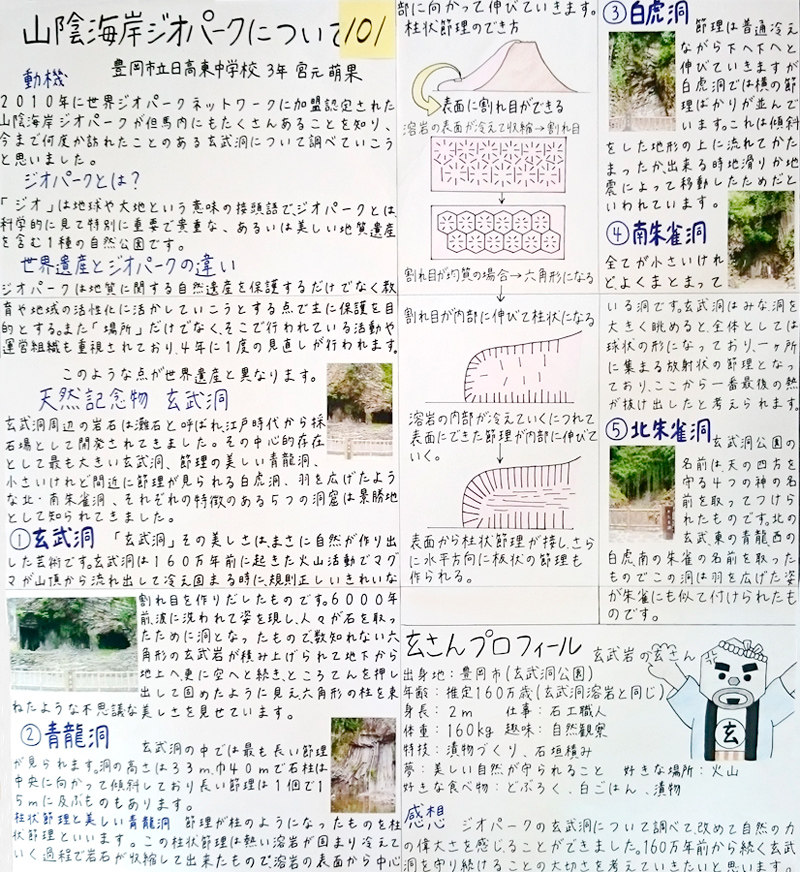 山陰海岸ジオパークについて
101
豊岡市立日高東中学校 3年 宮元 萌果
動機
2010年に世界ジオパークネットワークに加盟認定された
山陰海岸ジオパークが但馬内にもたくさんあることを知り、
今まで何度か訪れたことのある玄武洞について調べていこう
と思いました。
ジオパークとは?
「ジオ」は地球や大地という意味の接頭語で、ジオパークとは、
科学的に見て特別に重要で貴重な、あるいは美しい地質遺産
を含む1種の自然公園です。
世界遺産とジオパークの違い
ジオパークは地質に関する自然遺産を保護するだけでなく教
育や地域の活性化に活かしていこうとする点で主に保護を目
的とする。また「場所」だけでなく、そこで行われている活動や
運営組織も重視されており、4年に1度の見直しが行われます。
このような点が世界遺産と異なります。
天然記念物 玄武洞
玄武洞周辺の岩石は灘石と呼ばれ江戸時代から採
石場として開発されてきました。その中心的存在
として最も大きい玄武洞、節理の美しい青龍洞、
小さいけれど間近に節理が見られる白虎洞、羽を広げたよう
な北・南朱雀洞、それぞれの特徴のある5つの洞窟は景勝地
として知られてきました。
①玄武洞 「玄武洞」その美しさは、まさに自然が作り出
した芸術です。玄武洞は160万年前に起きた火山活動でマグ
マが山頂から流れ出して冷え固まる時に、規則正しいきれいな
割れ目を作りだしたものです。6000年
前、波に洗われて姿を現し、人々が石を取っ
たために洞となったもので数知れない六
角形の玄武岩が積み上げられて地下から
地上へ、更に空へと続き、ところてんを押し
出して固めたように見え六角形の柱を束
ねたような不思議な美しさを見せています。
②青龍洞 玄武洞の中では最も長い節理
が見られます。洞の高さは33m、巾40mで石柱は
中央に向かって傾斜しており長い節理は1個で1
5mに及ぶものもあります。
柱状節理と美しい青龍洞 節理が柱のようになったものを柱
状節理といいます。この柱状節理は熱い溶岩が固まり冷えて
いく過程で岩石が収縮して出来たもので、溶岩の表面から中心
部に向かって伸びていきます。
柱状節理のでき方
表面に割れ目ができる
溶岩の表面が冷えて収縮→割れ目
割れ目が均質の場合→六角形になる
割れ目が内部に伸びて柱状になる
溶岩の内部が冷えていくにつれて
表面にできた節理が内部に伸びて
いく。
表面から柱状節理が接し、さら
に水平方向に板状の節理も
作られる。
③白虎洞
節理は普通冷え
ながら下へ下へと
伸びていきますが
白虎洞では横の節
理ばかりが並んで
います。これは傾斜
をした地形の上に流れてかた
まったか、出来る時地滑りか地
震によって移動したためだと
いわれています。
④南朱雀洞
全てが小さいけれ
どよくまとまって
いる洞です。玄武洞はみな洞を
大きく眺めると、全体としては
球状の形になっており、一ヶ所
に集まる放射状の節理となっ
ており、ここから一番最後の熱
が抜け出したと考えられます。
⑤北朱雀洞
玄武洞公園の
名前は、天の四方を
守る4つの神の名
前を取ってつけら
れたものです。北の
玄武、東の青龍、西の
白虎南の朱雀の名前を取った
ものでこの洞は羽を広げた姿
が朱雀にも似て付けられたも
のです。
玄さんプロフィール 玄武岩の玄さん
出身地:豊岡市(玄武洞公園)
年齢:推定160万歳(玄武洞溶岩と同じ)
身長:2m 仕事:石工職人
体重:160kg 趣味:自然観察
特技:漬物づくり、石垣積み
夢:美しい自然が守られること 好きな場所:火山
好きな食べ物:どぶろく、白ごはん、漬物
玄
感想 ジオパークの玄武洞について調べて、改めて自然の力
の偉大さを感じることができました。160万年前から続く玄武
洞を守り続けることの大切さを考えていきたいと思います。